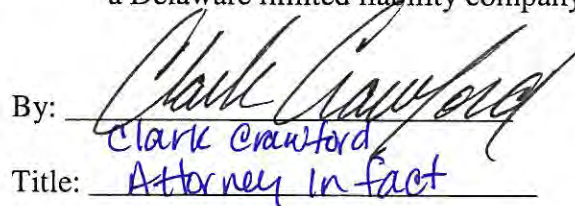 a Delaware limited liability company
By: Clark Crawford
Clark Crawford
Title: Attorney In fact